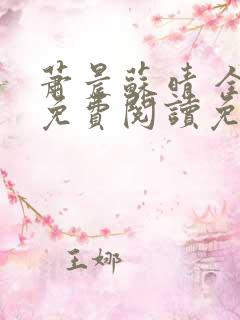 蕭景蘇晴 全
免費閱讀免
王娜